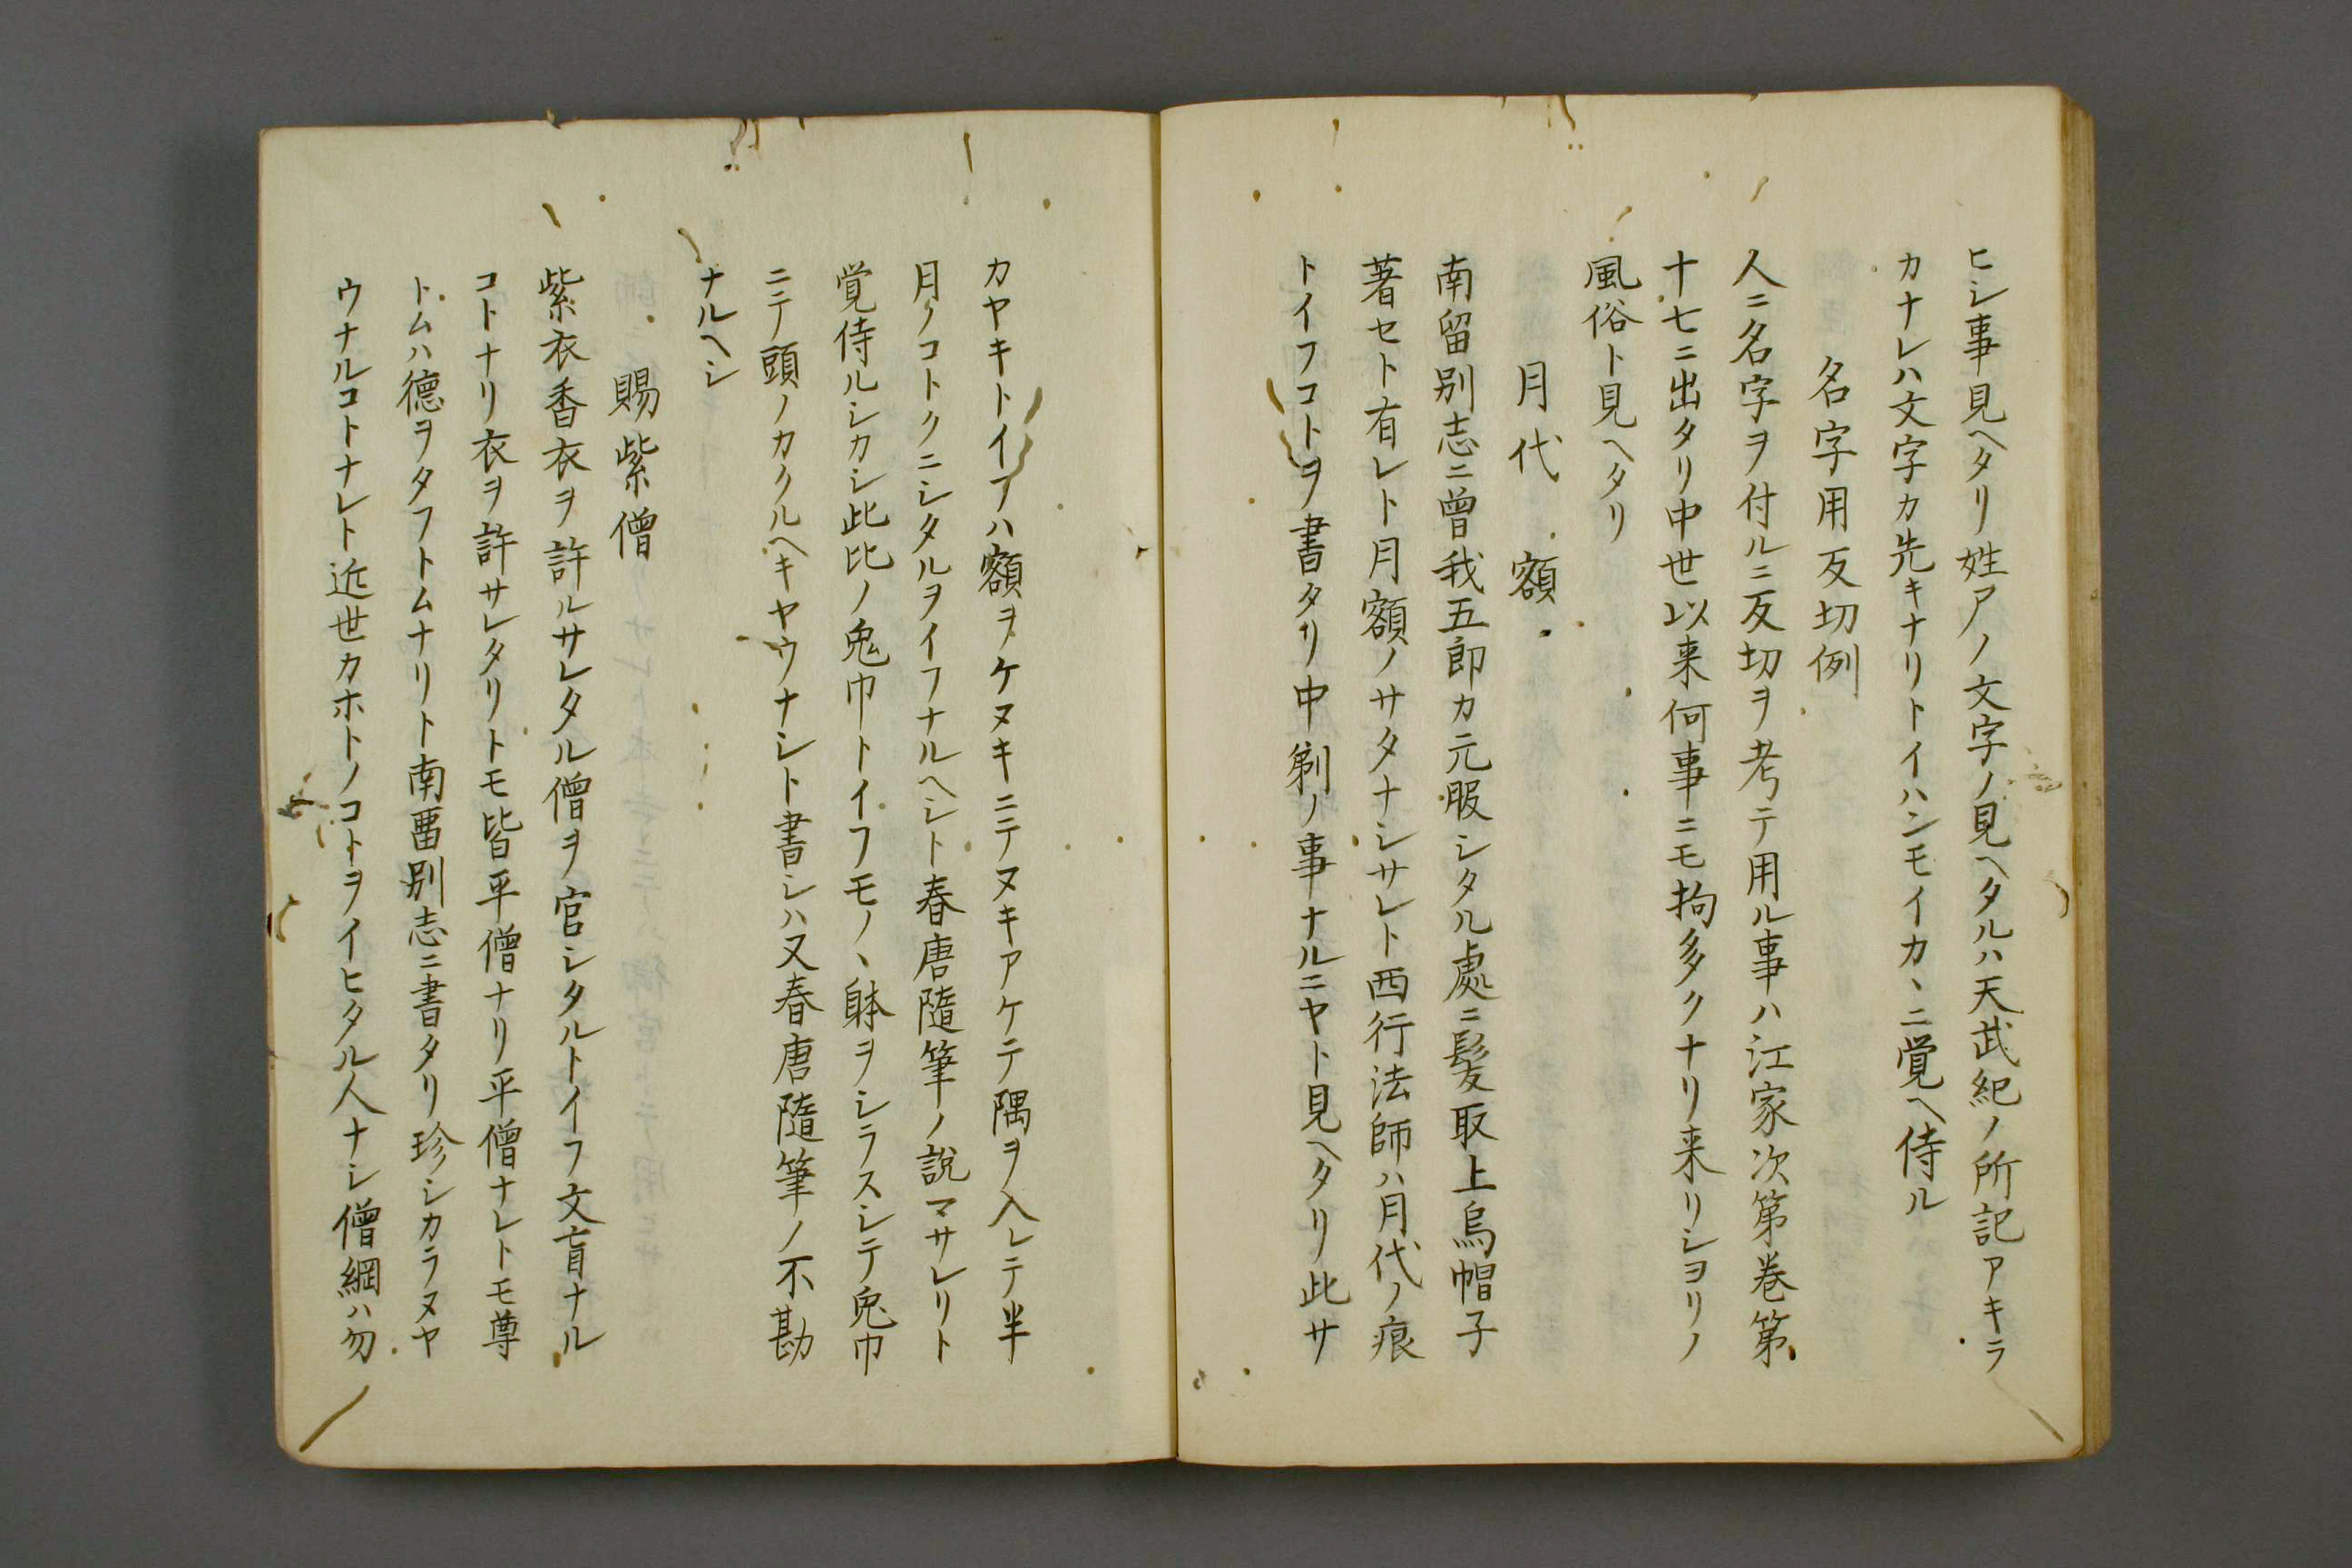 ヒシ事見ヘタリ姓アノ文字ノ見ヘタルハ天武紀ノ所記アキラ
カナレハ文字カ先キナリトイハンモイカヽニ覚ヘ侍ル
名字用反切例
人ニ名字ヲ付ルニ反切ヲ考テ用ル事ハ江家次第巻第
十七ニ出タリ中世以来何事ニモ拘多クナリ来リシヨリノ
風俗ト見ヘタリ
月代額
南留別志ニ曽我五郎カ元服シタル處ニ髪取上烏帽子
著セト有レト月額ノサタナシサレト西行法師ハ月代ノ痕
トイフコトヲ書タリ中剃ノ事ナルニヤト見ヘタリ此サ
カヤキトイフハ額ヲケヌキニテヌキアケテ隅ヲ入レテ半
月ノコトクニシタルヲイフナルヘシト春唐隨筆ノ説マサレリト
覚侍ルシカシ此比ノ兔巾トイフモノヽ躰ヲシラスシテ兔巾
ニテ頭ノカクルヘキヤウナシト書シハ又春唐隨筆ノ不勘
ナルヘシ
賜紫僧
紫衣香衣ヲ許ルサレタル僧ヲ官シタルトイフ文盲ナル
コトナリ衣ヲ許サレタリトモ皆平僧ナリ平僧ナレトモ尊
トムハ徳ヲタフトムナリト南畱別志ニ書タリ珍シカラヌヤ
ウナルコトナレト近世カホトノコトヲイヒタル人ナシ僧綱ハ勿